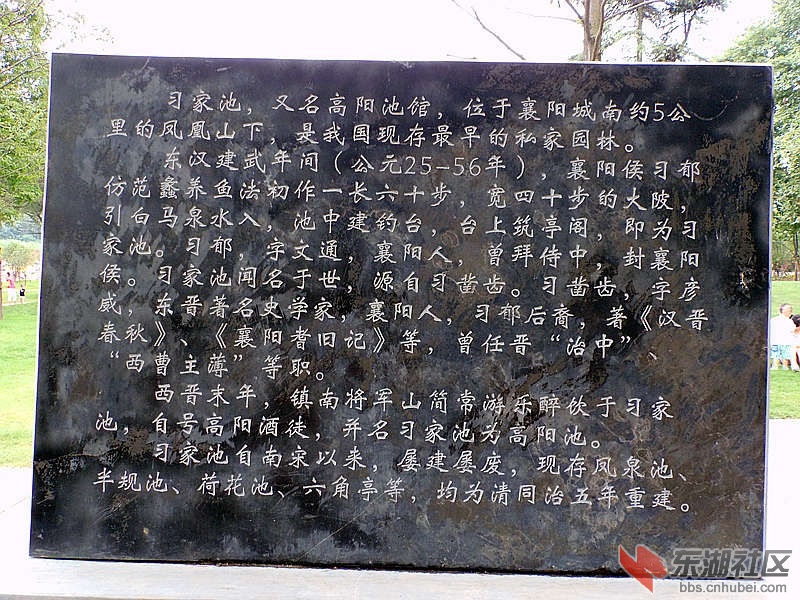 习家池，又名高阳池馆，位于襄阳城南约5公
里的凤凰山下，是我国现存最早的私家园林。
东汉建武年间（公元25—56年），襄阳侯习郁
仿范蠡养鱼法初作一长六十步，宽四十步的大陂，
引白马泉水入，池中建钓台，台上筑亭阁，即为习
家池。习郁，字文通，襄阳人，曾拜侍中，封襄阳
侯。习家池闻名于世，源自习凿齿。习凿齿，字彦
威，东晋著名史学家，襄阳人，习郁后裔，著《汉晋
春秋》、《襄阳耆旧记》等，曾任晋“治中”、
“西曹主薄”等职。
西晋末年，镇南将军山简常游乐醉饮于习家
池，自号高阳酒徒，并名习家池为高阳池。
习家池自南宋以来，屡建屡废，现存凤泉池、
半规池、荷花池、六角亭等，均为清同治五年重建。
东湖社区
bbs.cnhubei.com